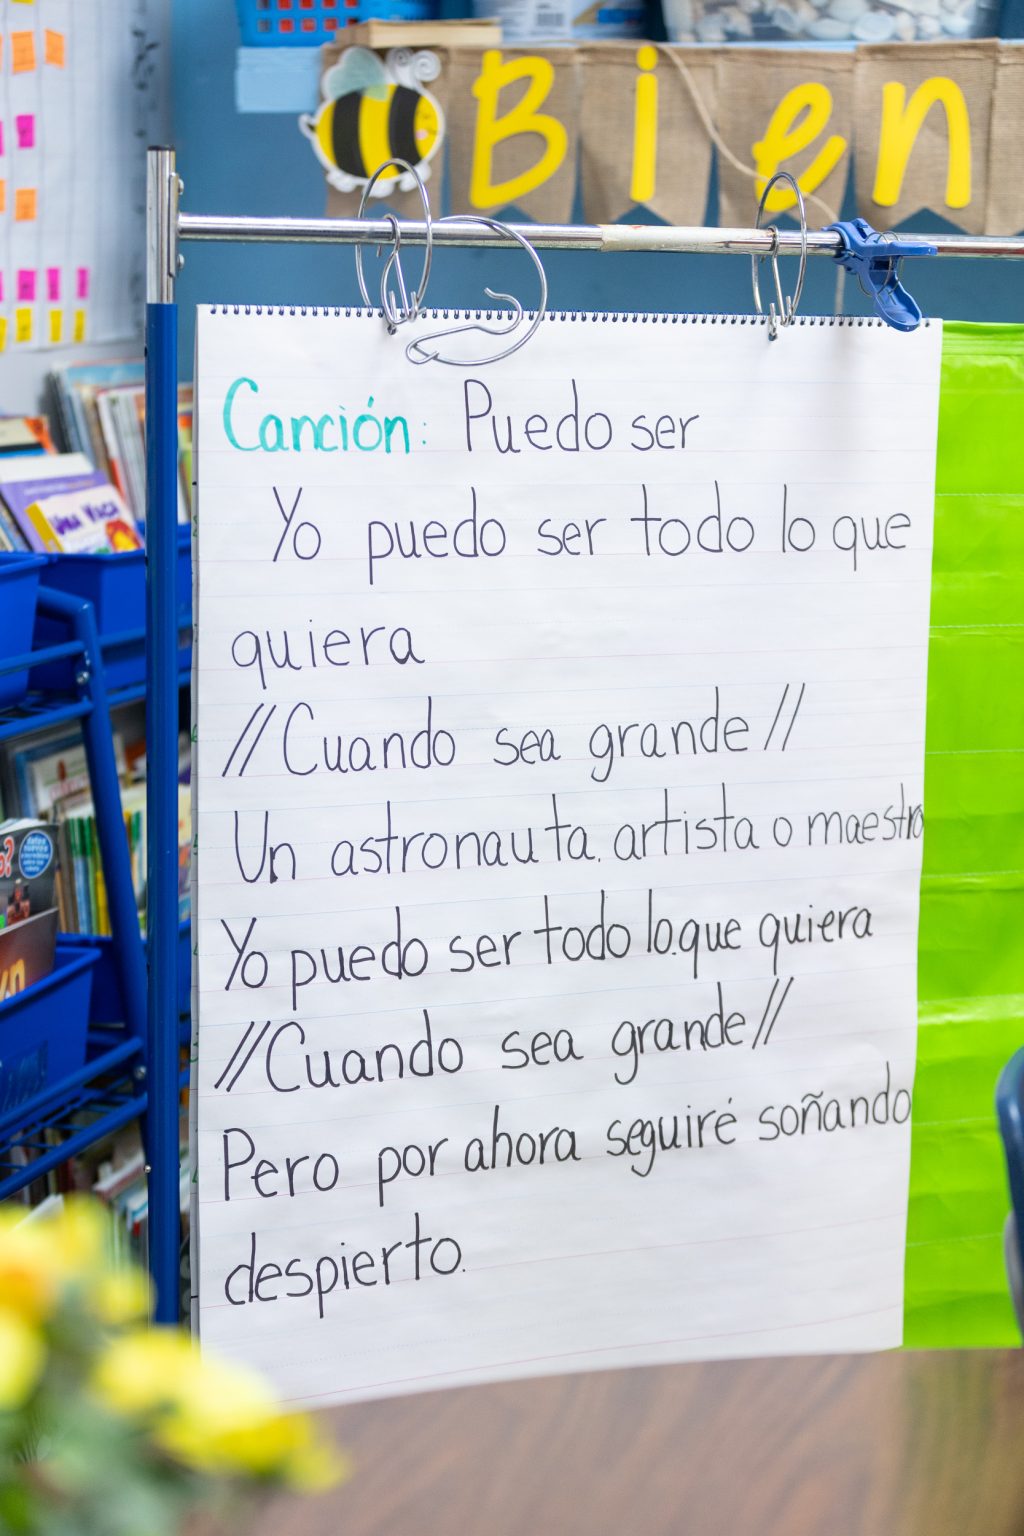 Bien
Canción: Puedo ser
Yo puedo ser todo lo que
quiera
//Cuando sea grande//
Un astronauta, artista o maestro
Yo puedo ser todo lo que quiera
//Cuando sea grande//
Pero por ahora seguiré soñando
despierto.
Una Vaca